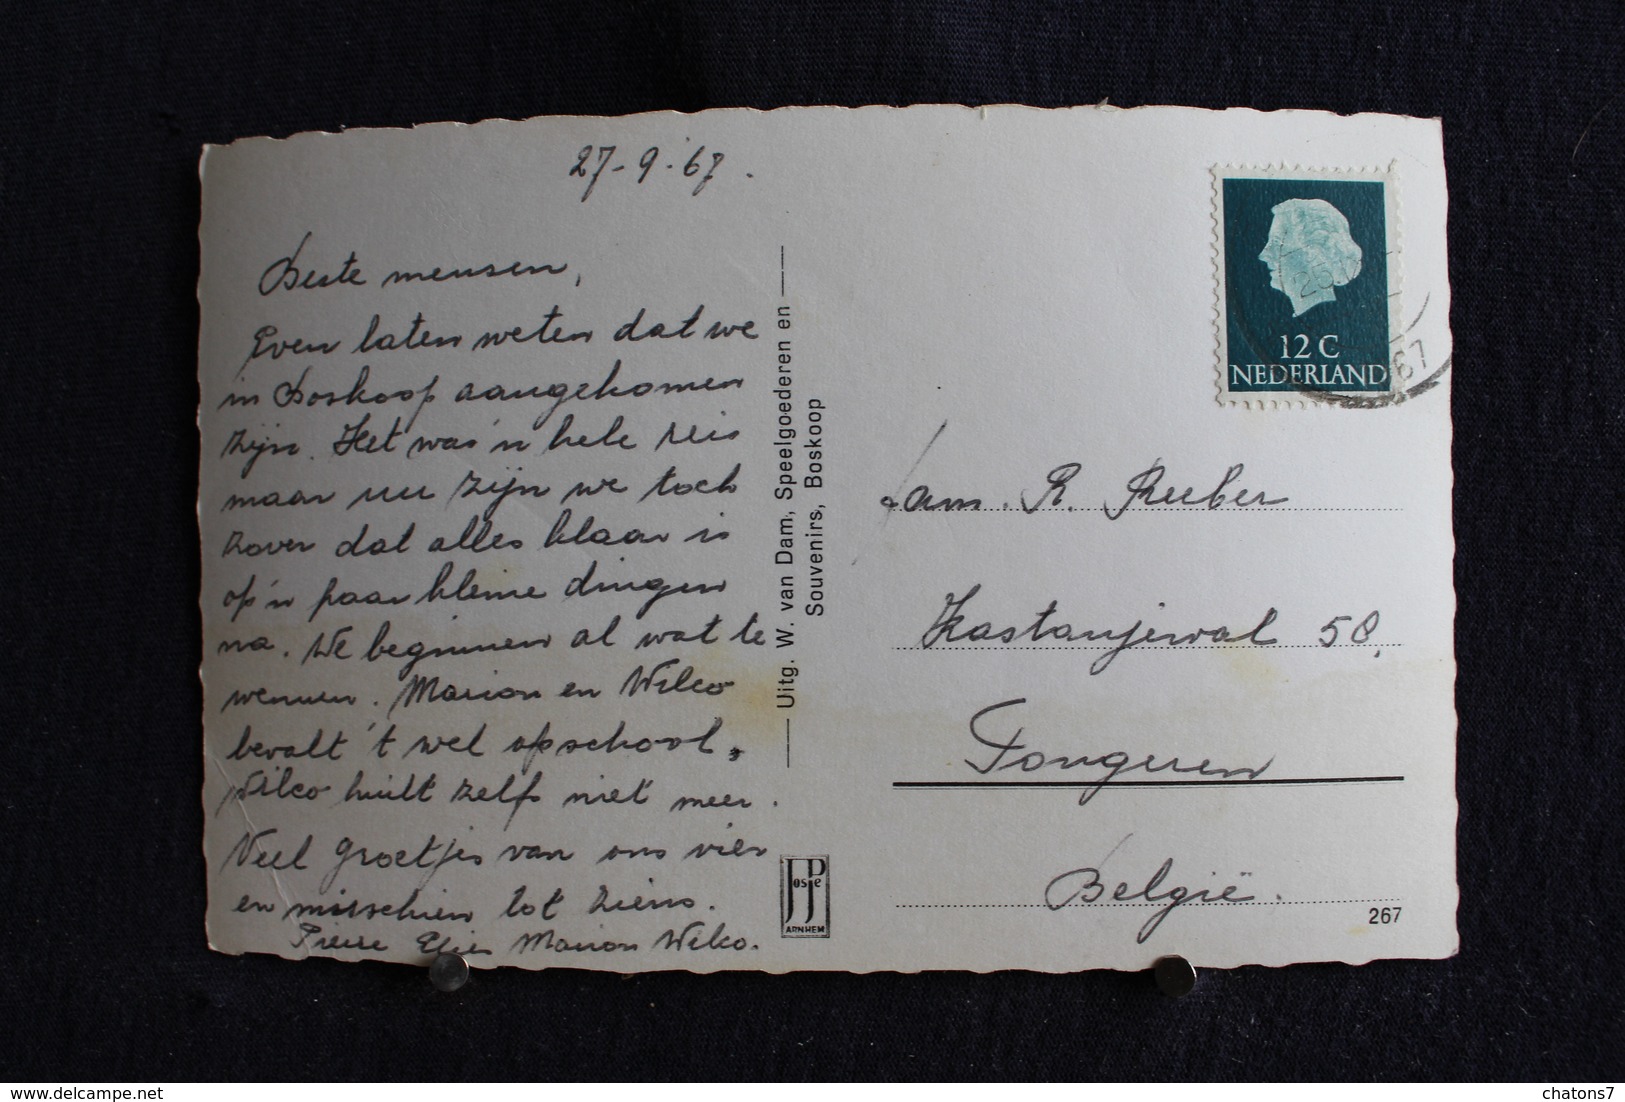 27-9-'67.
Beste mensen,
Even laten weten dat we
in Boskoop aangekomen
zijn. Het was 'n hele reis
maar nu zijn we toch
zover dat alles klaar is
op 'n paar kleine dingen
na. We beginnen al wat te
wennen. Marion en Wilco
bevalt 't wel op school,
Wilco huilt zelfs niet meer.
Veel groetjes van ons vier
en misschien tot ziens.
Pierre Elie Marion Wilco.
Uitg. W. van Dam, Speelgoederen en
Souvenirs, Boskoop
12 C
NEDERLAND
67
Fam. R. Reuber
Kastanjewal 58,
Tongeren
België.
267
JosPe
ARNHEM
chatons7